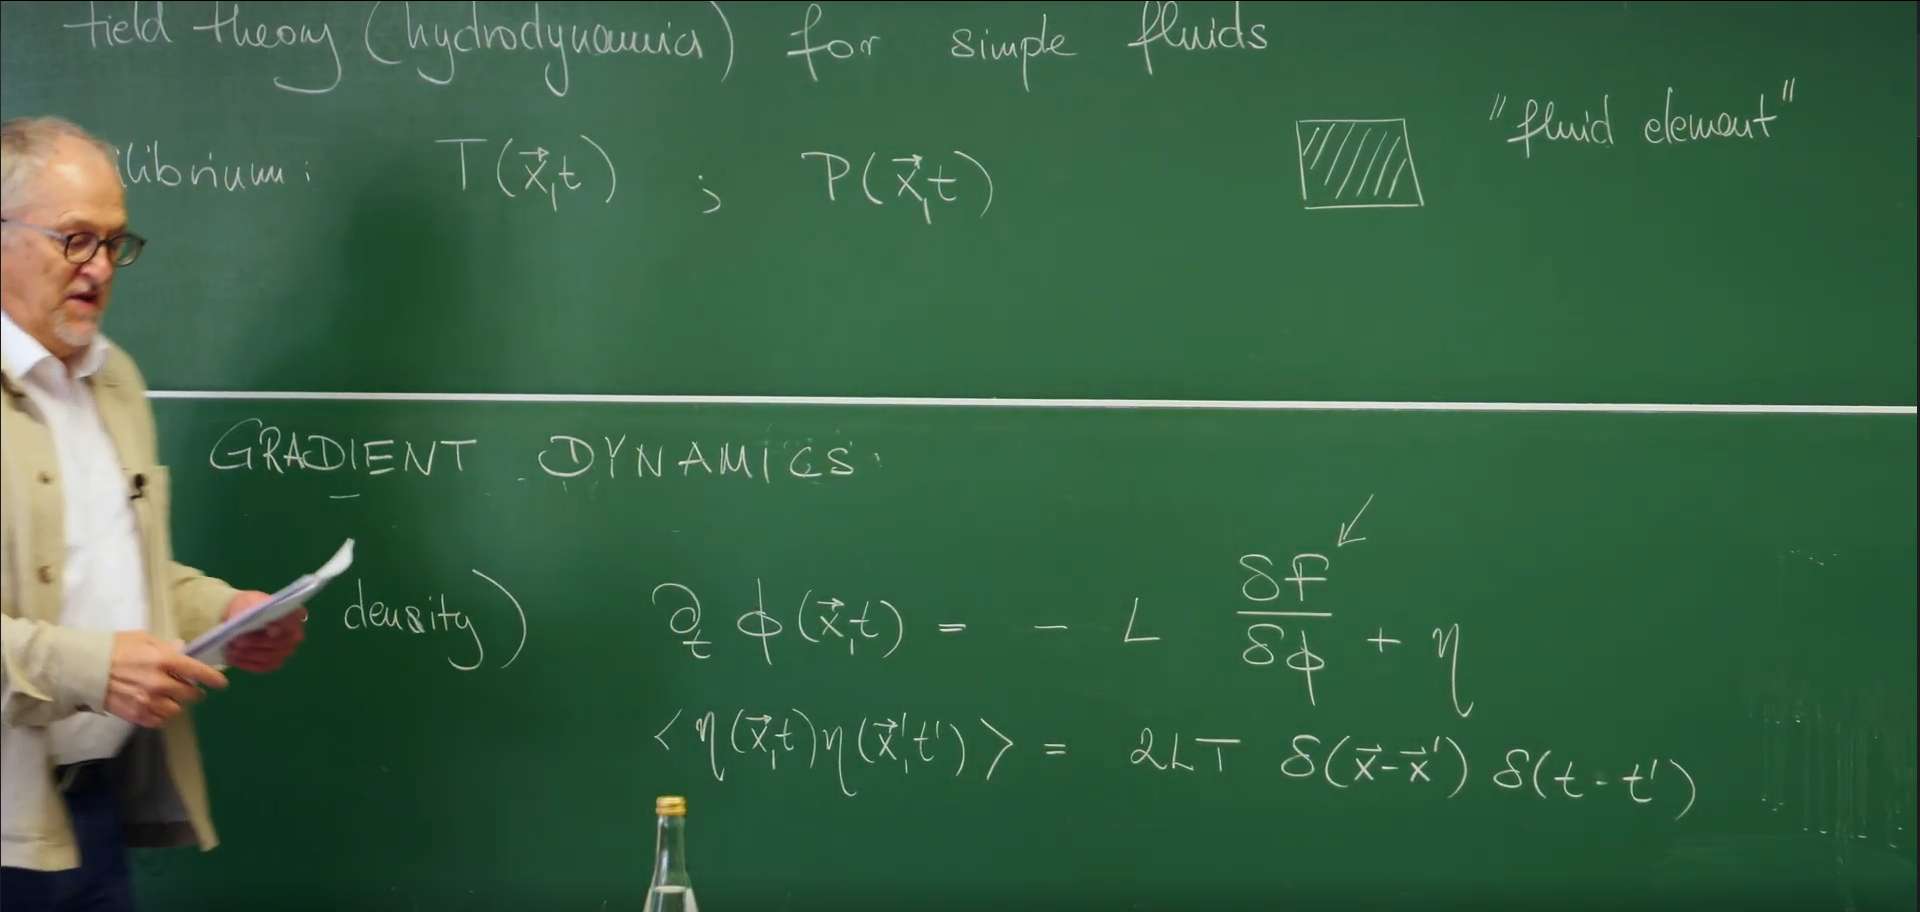 field theory (hydrodynamics) for simple fluids
"fluid element"
ilibrium: T(x⃗,t) ; P(x⃗,t)
GRADIENT DYNAMICS
density) ∂ₜ ϕ(x⃗,t) = - L δF/δϕ + η
⟨η(x⃗,t)η(x⃗',t')⟩ = 2LT δ(x⃗-x⃗') δ(t-t')